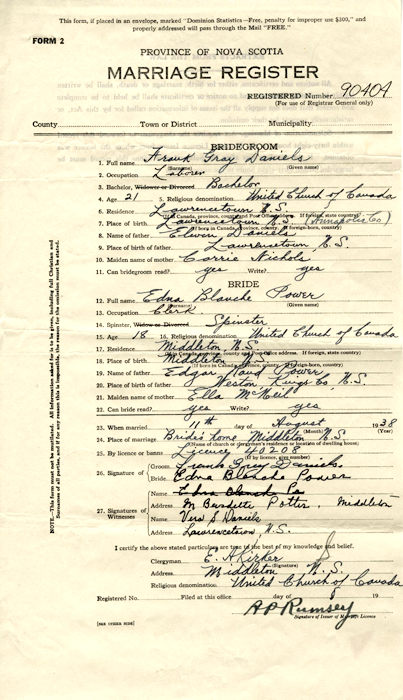 This form, if placed in an envelope, marked "Dominion Statistics—Free, penalty for improper use $300," and
properly addressed will pass through the Mail "FREE."
FORM 2
PROVINCE OF NOVA SCOTIA
MARRIAGE REGISTER
REGISTERED Number 90404
(For use of Registrar General only)
County Town or District Municipality
BRIDEGROOM
1. Full name Frank Gray Daniels
(Surname) (Given name)
2. Occupation Laborer
3. Bachelor, Widower or Divorced Bachelor
4. Age 21 5. Religious denomination United Church of Canada
6. Residence Lawrencetown N.S.
7. Place of birth Lawrencetown N.S. (Annapolis Co)
8. Name of father Elwin Daniels
9. Place of birth of father Lawrencetown N.S.
10. Maiden name of mother Carrie Nichols
11. Can bridegroom read? yes Write? yes
BRIDE
12. Full name Edna Blanche Power
(Surname) (Given name)
13. Occupation Clerk
14. Spinster, Widow or Divorced Spinster
15. Age 18 16. Religious denomination United Church of Canada
17. Residence Middleton N.S.
18. Place of birth Middleton N.S.
19. Name of father Edgar Power
20. Place of birth of father Weston Kings Co N.S.
21. Maiden name of mother Ella McNeil
22. Can bride read? yes Write? yes
23. When married 11th day of August 1938
(Month) (Year)
24. Place of marriage Bride's home Middleton N.S
(Name of church or clergyman's residence or location of dwelling house)
25. By licence or banns Licence 40208
(If by licence, give number)
26. Signature of Groom Frank Gray Daniels
Bride Edna Blanche Power
27. Signatures of Witnesses
Name Edna Blanch Po
Address M Burdette Potter, Middleton
Name Vera S Daniels
Address Lawrencetown, N.S.
I certify the above stated particulars are true to the best of my knowledge and belief.
Clergyman E. A. Kirker
(Signature)
Address Middleton N.S.
Religious denomination United Church of Canada
Registered No. Filed at this office day of 19
A P Rumsey
Signature of Issuer of Marriage Licence
[SEE OTHER SIDE]
NOTE.—This form must not be mutilated. All information asked for is to be given, including full Christian and
Surnames of all parties, and if for any reason this is impossible, the reason for the omission must be stated.